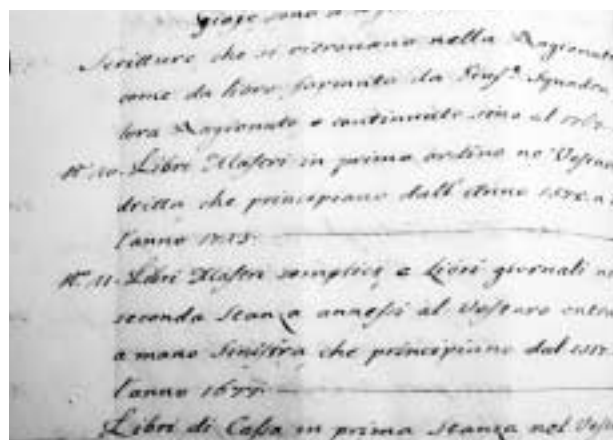 sono a
Scritture che si ritrovano nella Ragionato
come da libro formato da Squadra
lora Ragionato e continuato sino al
N.º 10. Libri Mastri in primo ordine ne Vestar
dritta che principiano dall' Anno
l'anno
N.º 11. Libri Mastri semplici e Libri giornali ne
seconda stanza annessi al Vestaro entra
a mano sinistra che principiano dal
l'anno 1677.
Libri di Cassa in prima stanza nel Vest